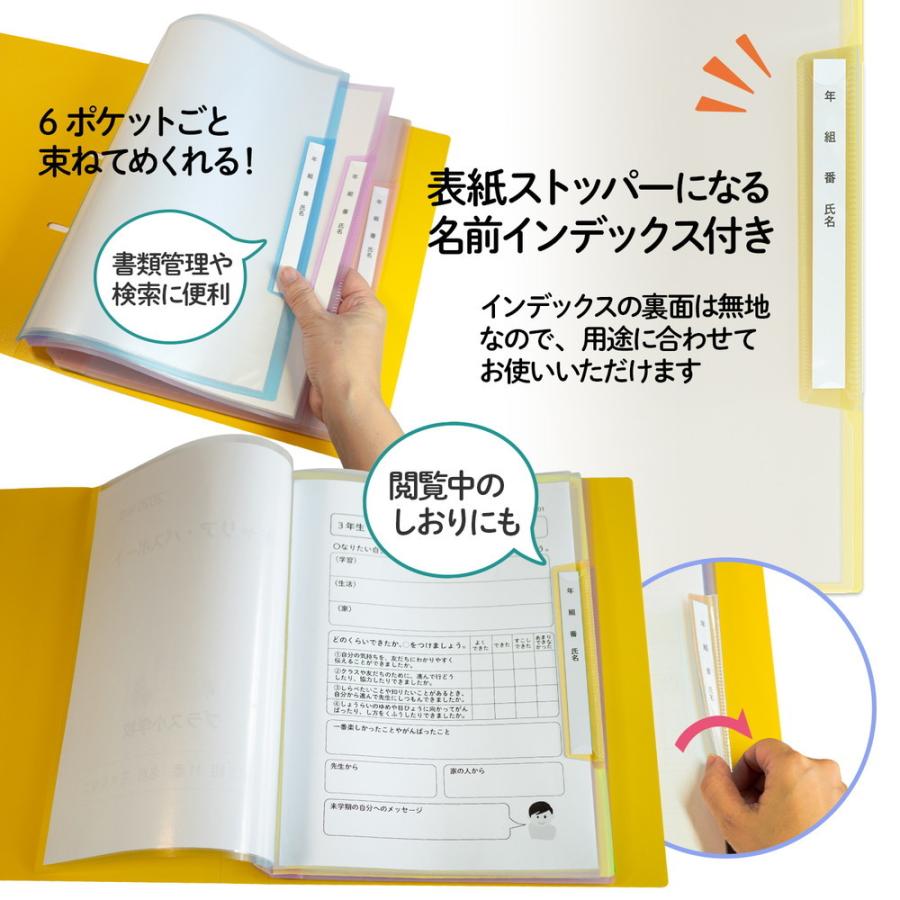 6ポケットごと
束ねてめくれる！
書類管理や
検索に便利
年 組 番 氏名
年 組 番 氏名
年 組 番 氏名
表紙ストッパーになる
名前インデックス付き
インデックスの裏面は無地
なので、用途に合わせて
お使いいただけます
年 組 番 氏名
閲覧中の
しおりにも
3年生
○なりたい自
（学習）
（生活）
（家）
どのくらいできたか、○をつけましょう。
よくできた
できた
すこしできた
あまりできなかった
①自分の気持ちを、友だちにわかりやすく
伝えることができましたか。
②クラスや友だちのために、進んで行どう
したり、協力したりできましたか。
③しらべたいことや知りたいことがあるとき、
自分から進んで先生にしつもんできましたか。
④しょうらいのゆめや目ひょうに向かってがん
ばったり、し方をくふうしたりできましたか。
一番楽しかったことやがんばったこと
先生から
家の人から
来学期の自分へのメッセージ
年 組 番 氏名
年 組 番 氏名